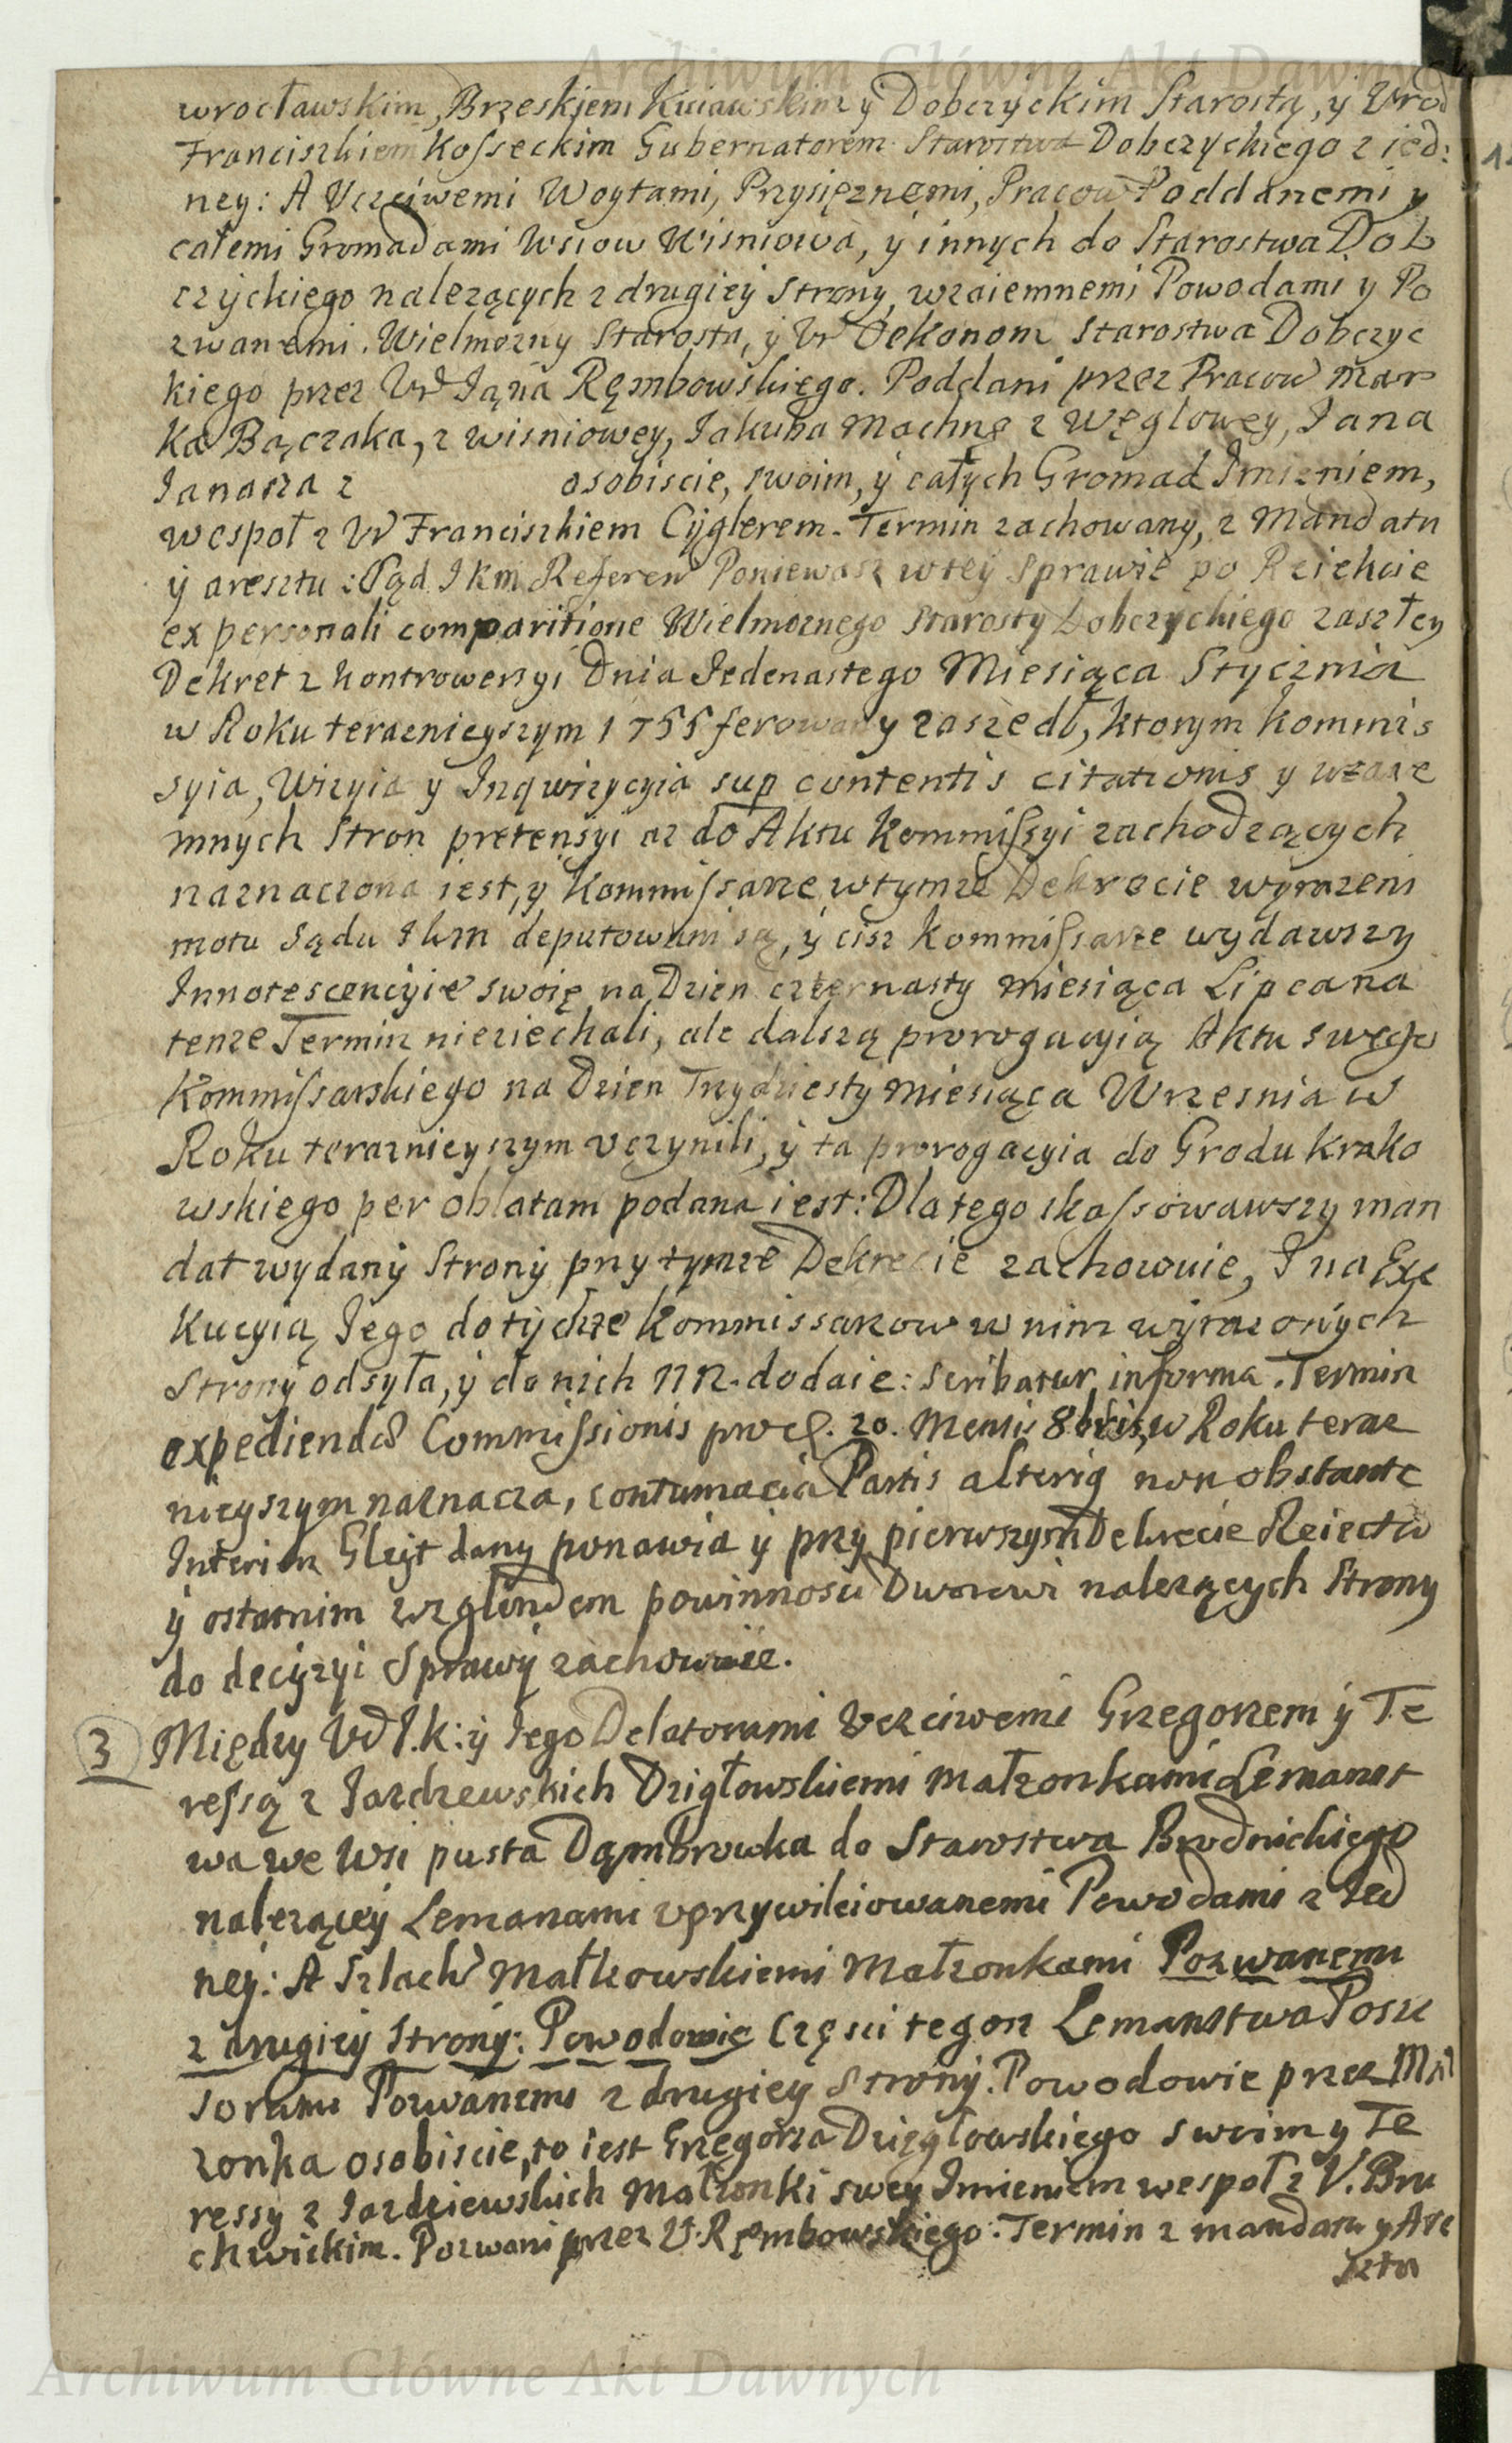 Archiwum Główne Akt Dawnych
wrocławskim, Brzeskiem Kuiawskim y Dobczyckim Starostą, y Vrod
Franciszkiem Kosseckim Gubernatorem Starostwa Dobczyckiego z ied:
ney: A Vczciwemi Woytami, Przysięznemi, Pracow Poddanemi y
całemi Gromadami Wsiow Wisniowa, y innych do Starostwa Dob
czyckiego nalezących z drugiey Strony, wzaiemnemi Powodami y Po
zwanemi. Wielmozny Starosta, y Vr Oekonom Starostwa Dobczyc
kiego przez Vr Jana Rębowskiego. Poddani przez Pracow Mar
ka Bączaka, z wisniowey, Jakuba Machnę z Węglowey, Jana
Janasza z osobiscie, swoim, y całych Gromad Imieniem,
wespoł z Vr Franciszkiem Cyglerem. Termin zachowany, z Mandatu
y aresztu: Sąd JKM Referen Poniewasz wtey Sprawie po Reiekcie
ex personali comparitione Wielmoznego Starosty Dobczyckiego zaszłey
Dekret z kontrowersyi Dnia Jedenastego Miesiąca Stycznia
w Roku teraznieyszym 1755 ferowany zaszedł, ktorym kommis
syia, Wizyia y Inqwizycyia sup contentis citationis y wzaie
mnych Stron pretensyi az do Aktu Kommissyi zachodzących
naznaczona iest, y Kommissarze wtymze Dekrecie wyrazeni
motu Sądu JKM deputowani są, y cisz Kommissarze wydawszy
Innotescencyie swoię na Dzien czternasty miesiąca Lipca na
tenze Termin nieziechali, ale dalszą prorogacyią Aktu swego
Kommissarskiego na Dzien Trzydziesty Miesiąca Wrzesnia w
Roku teraznieyszym vczynili, y ta prorogacyia do Grodu krako
wskiego per oblatam podana iest: Dlatego skassowawszy man
dat wydany Strony przy tymze Dekrecie zachowuie, I na Exe
kucyią Jego do tychze Kommissarzow w nim wyrazonych
Strony odsyła, y do nich NN. dodaie: scribatur in forma. Termin
expediendæ Commissionis pro d. 20. Mensis 8bris, w Roku teraz
nieyszym naznacza, contumacia Partis alterius non obstante
Interim Gleyt dany ponawia y przy pierwszym Dekrecie Reiectu
y ostatnim względem powinnosci Dworowi nalezących Strony
do decyzyi Sprawy zachowuie.
3 Między Vr J.K: y Jego Delatorami Vczciwemi Grzegorzem y Te
ressą z Jazdzewskich Dzigłowskiemi małzonkami Lemanst
wa we Wsi pusta Dąmbrowka do Starostwa Brodnickiego
nalezącey Lemanami vprzywileiowanemi Powodami z Jed
ney: A Szlach Małkowskiemi Małzonkami Pozwanemi
z drugiey Strony: Powodowie Częsci tegosz Lemanstwa Posse
sorami Pozwanemi z drugiey Strony. Powodowie przez Mał
zonka osobiscie, to iest Grzegorza Dzięgłowskiego swoim y Te
ressy z Jazdziewskich Małzonki swey Imieniem wespoł z V. Bru
chwickim. Pozwani przez V. Rębowskiego: Termin z mandatu y Are
sztu
Archiwum Główne Akt Dawnych